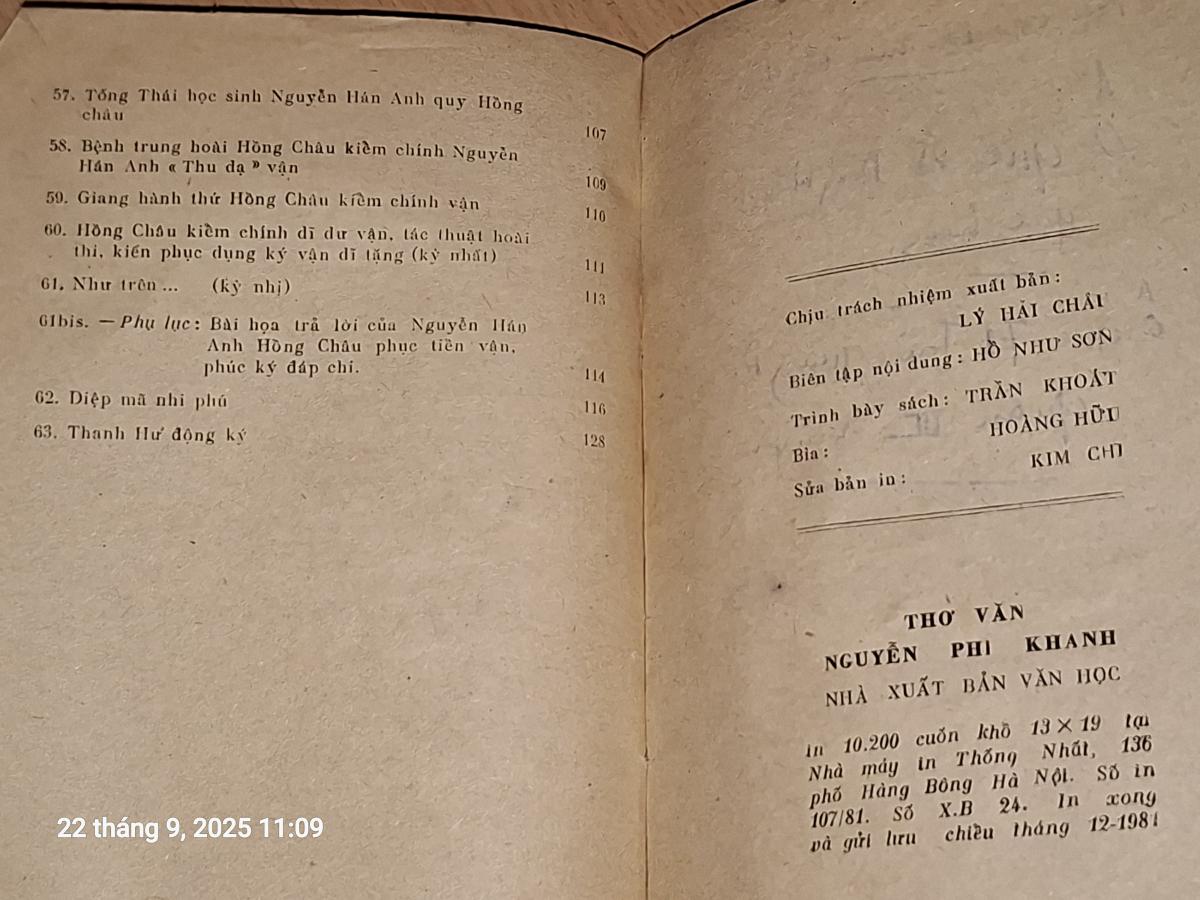 57. Tống Thái học sinh Nguyễn Hán Anh quy Hồng
châu 107
58. Bệnh trung hoài Hồng Châu kiểm chính Nguyễn
Hán Anh « Thu dạ » vận 109
59. Giang hành thứ Hồng Châu kiểm chính vận 110
60. Hồng Châu kiểm chính dĩ dư vận, tác thuật hoài
thi, kiến phục dụng ký vận dĩ tặng (kỳ nhất) 111
61. Như trên ... (kỳ nhị) 113
61bis. — Phụ lục: Bài họa trả lời của Nguyễn Hán
Anh Hồng Châu phục tiền vận,
phúc ký đáp chi. 114
62. Diệp mã nhi phú 116
63. Thanh Hư động ký 128
Chịu trách nhiệm xuất bản:
LÝ HẢI CHÂU
Biên tập nội dung: HỒ NHƯ SƠN
Trình bày sách: TRẦN KHOÁT
Bìa: HOÀNG HỮU
Sửa bản in: KIM CHI
THƠ VĂN
NGUYỄN PHI KHANH
NHÀ XUẤT BẢN VĂN HỌC
In 10.200 cuốn khổ 13 × 19 tại
Nhà máy in Thống Nhất, 136
phố Hàng Bông Hà Nội. Số in
107/81. Số X.B 24. In xong
và gửi lưu chiểu tháng 12-1981
22 tháng 9, 2025 11:09